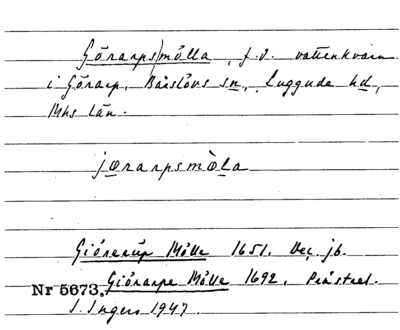 Görarps/mölla, f.d. vattenkvarn
i Görarp, Bårslövs sn, Luggude hd,
Mhs län.
jœrarpsmòla
Giörerup Mölle 1651. Dec. jb.
Nr 5673. Giörarps Mölle 1692,
I. Ingers 1947.